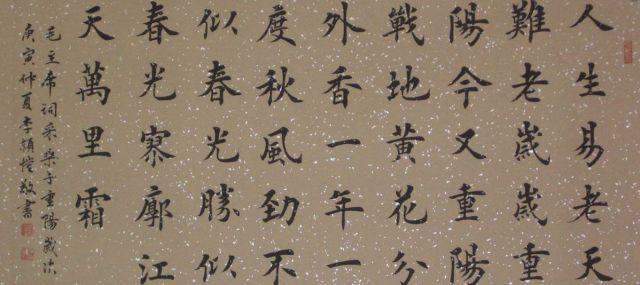 人生易老天
難老歲歲重
陽今又重陽
戰地黃花分
外香一年一
度秋風勁不
似春光勝似
春光寥廓江
天萬里霜
毛主席詞采桑子重陽歲次
庚寅仲夏李敬書